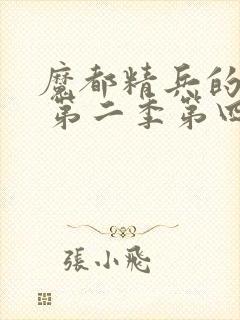 魔都精兵的
第二季第四
張小飛